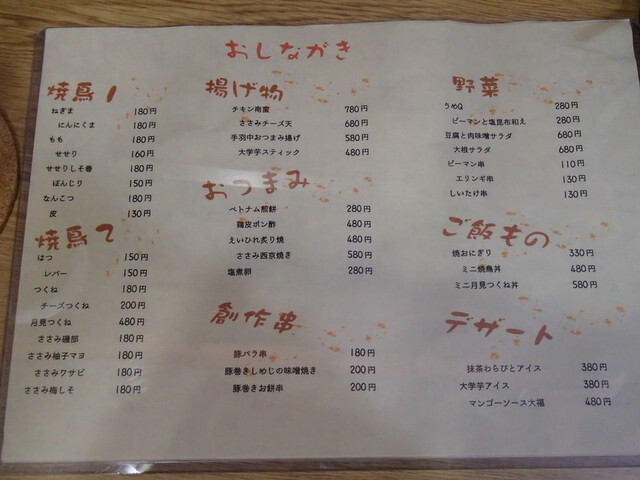 おしながき
焼鳥1
ねぎま 180円
にんにくま 180円
もも 180円
せせり 160円
せせりしそ巻 180円
ぼんじり 150円
なんこつ 180円
皮 130円
焼鳥2
はつ 150円
レバー 150円
つくね 180円
チーズつくね 200円
月見つくね 480円
ささみ磯部 180円
ささみ柚子マヨ 180円
ささみワサビ 180円
ささみ梅しそ 180円
揚げ物
チキン南蛮 780円
ささみチーズ天 680円
手羽中おつまみ揚げ 580円
大学芋スティック 480円
おつまみ
ベトナム煎餅 280円
鶏皮ポン酢 480円
えいひれ炙り焼 480円
ささみ西京焼き 580円
塩煮卵 280円
創作串
豚バラ串 180円
豚巻きしめじの味噌焼き 200円
豚巻きお餅串 200円
野菜
うめQ 280円
ピーマンと塩昆布和え 280円
豆腐と肉味噌サラダ 680円
大根サラダ 680円
ピーマン串 110円
エリンギ串 130円
しいたけ串 130円
ご飯もの
焼おにぎり 330円
ミニ焼鳥丼 480円
ミニ月見つくね丼 580円
デザート
抹茶わらびとアイス 380円
大学芋アイス 380円
マンゴーソース大福 480円